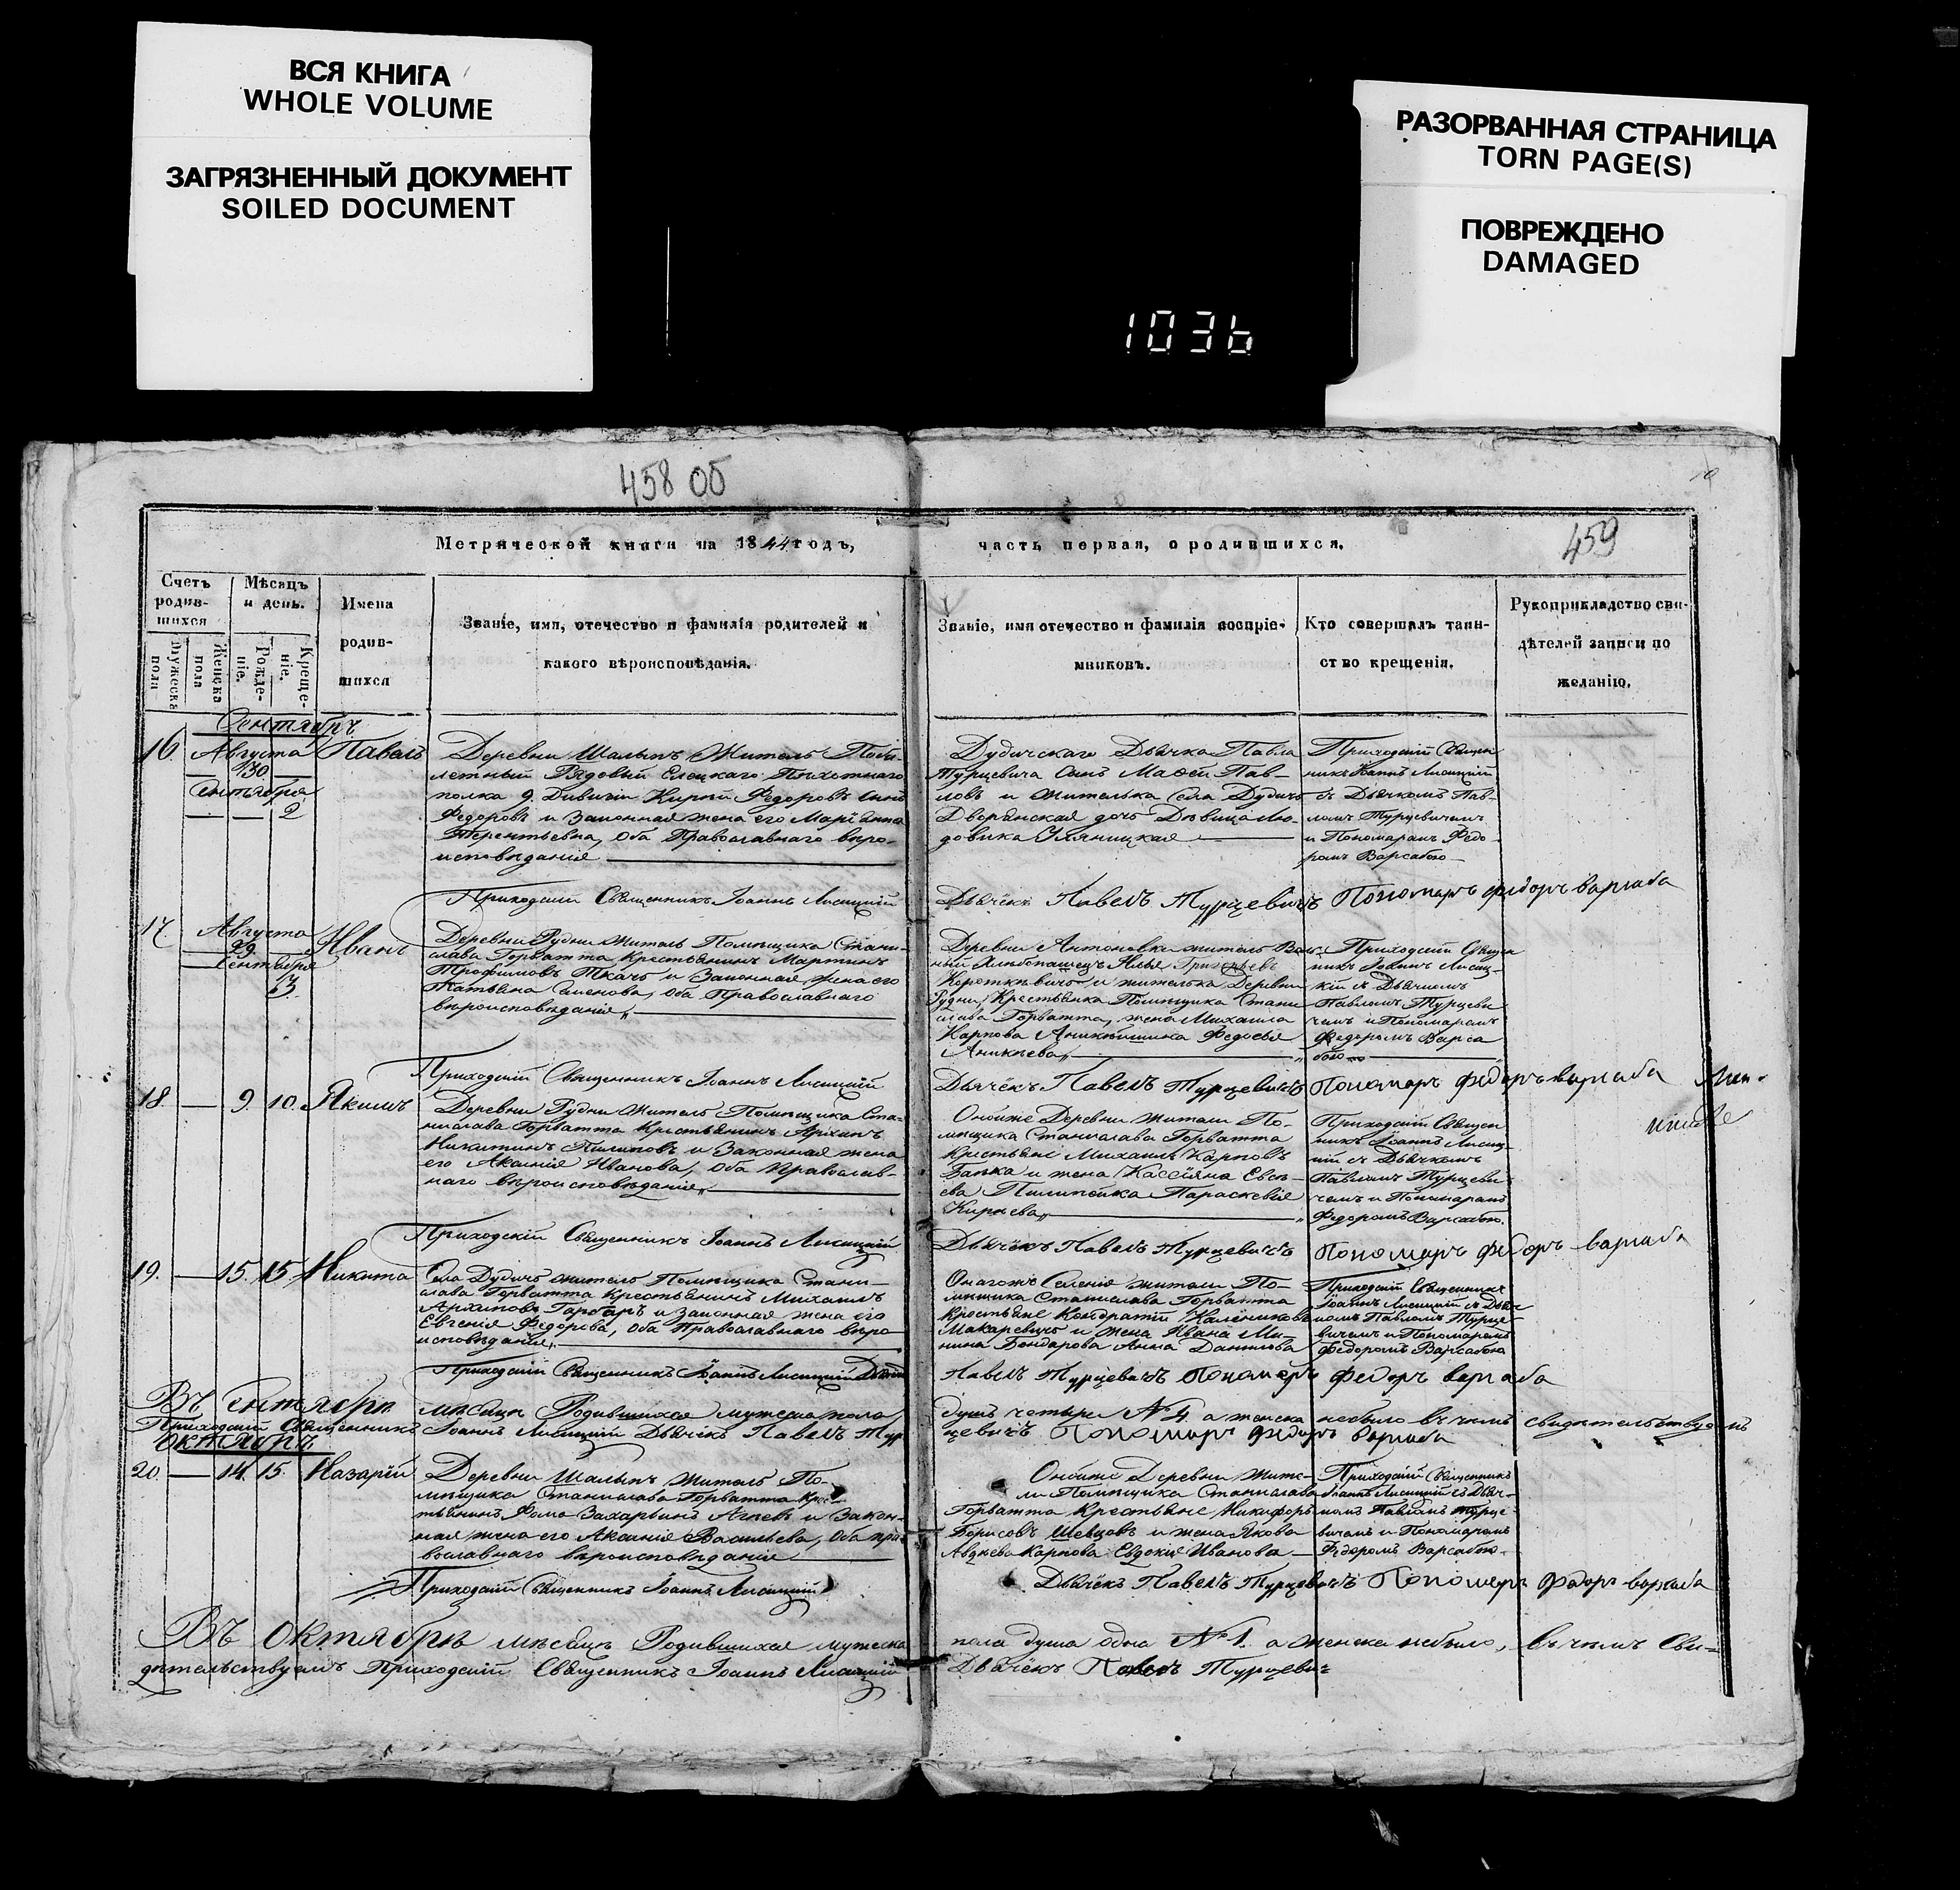 ВСЯ КНИГА
WHOLE VOLUME
ЗАГРЯЗНЕННЫЙ ДОКУМЕНТ
SOILED DOCUMENT
РАЗОРВАННАЯ СТРАНИЦА
TORN PAGE(S)
ПОВРЕЖДЕНО
DAMAGED
1036
458 об
10
459
Метрической книги на 1844 годъ,
часть первая, о родившихся.
Счетъ родившихся
Мужеска пола
Женска пола
Мѣсяцъ и день.
Рожденіе.
Крещеніе.
Имена родившихся
Званіе, имя, отечество и фамилія родителей и
какого вѣроисповѣданія.
Званіе, имя отечество и фамилія воспріе-
мниковъ.
Кто совершалъ таин-
ство крещенія.
Рукоприкладство сви-
дѣтелей записи по
желанію.
Сентябрь
16.
Августа
30
Сентября
2
Павелъ
Деревни Шалыпъ Житель
Рядовый Елецкаго Пѣхотнаго
полка 9. Дивизіи Кирій Федоровъ сынъ
Федоровъ и Законная жена его Маріянна
Терентьевна, оба Православнаго вѣро-
исповѣданія
Дудичскаго Дьячка Павла
Турцевича Сынъ Маѳей Пав-
ловъ и жителька села Дудичъ
Дворянская дочь Дѣвица Лю-
довика
Приходскій Священ
никъ Іоаннъ Лисицкій
съ Дьячкомъ Пав-
ломъ Турцевичемъ
и Пономаремъ Федо-
ромъ Варсабою
Приходскій Священникъ Іоаннъ Лисицкій
Дьячёкъ Павелъ Турцевичъ Пономарь федоръ варсаба
17.
Августа
29
Сентября
3.
Иванъ
Деревни Рудни житель Помѣщика Стани-
слава Горватта Крестьянинъ Мартинъ
Трофимовъ Ткачъ и Законная жена его
Татьяна Семенова, оба Православнаго
вѣроисповѣданія,,
Деревни Антоновки житель Воль-
ный Хлѣбопашецъ Илья Григорьевъ
Короткевичъ и жителька Деревни
Рудни, Крестьянка Помѣщика Стани
слава Горватта, жена Михаила
Карпова Федосья
Аникѣева,,
Приходскій Священ
никъ Іоаннъ Лисиц-
кій съ Дьячкомъ
Павломъ Турцеви
чемъ и Пономаремъ
Федоромъ Варса
бою
Приходскій Священникъ Іоаннъ Лисицкій
Дьячёкъ Павелъ Турцевичъ Пономарь федоръ варсаба
18.
9.
10.
Якимъ
Деревни Рудни Житель Помѣщика Ста-
нислава Горватта Крестьянинъ Архипъ
Никитинъ Пилиповъ и Законная жена
его Аксинія Иванова, оба Православ-
наго вѣроисповѣданія,,
Онойже Деревни жители По-
мѣщика Станислава Горватта
Крестьяне Михаилъ Карповъ
Бапка и жена Кассіяна Евсѣ-
ева Пилипойка Параскевія
Кирѣева,,
Приходскій Священ
никъ Іоаннъ Лисиц-
кій съ Дьячкомъ
Павломъ Турцеви
чемъ и Пономаремъ
Федоромъ Варсабою.
Приходскій Священникъ Іоаннъ Лисицкій
Дьячёкъ Павелъ Турцевичъ Пономарь федоръ варсаба
19.
15.
15
Никита
Села Дудичъ житель Помѣщика Стани-
слава Горватта Крестьянинъ Михаилъ
Архиповъ Гарбаръ и Законная жена его
Евгенія Федорова, оба Православнаго вѣро-
исповѣданія,,
Онагожъ Селенія жители По-
мѣщика Станислава Горватта
Крестьяне Кондратій Калениковъ
Макаревичъ и жена Ивана Ми-
нина Бондарова Анна Данилова
Приходскій Священникъ
Іоаннъ Лисицкій съ Дьяч-
комъ Павломъ Турце-
вичемъ и Пономаремъ
Федоромъ Варсабою
Приходскій Священникъ Іоаннъ Лисицкій Дьячёкъ
Павелъ Турцевичъ Пономарь федоръ варсаба
Въ Сентябрѣ мѣсяцѣ Родившихся мужеска пола душъ четыре №4. а женска небыло въ чемъ свидѣтельствуемъ
Приходскій Священникъ Іоаннъ Лисицкій Дьячёкъ Павелъ Турцевичъ Пономарь федоръ варсаба
Октябрь
20.
14.
15.
Назарій
Деревни Шалыпъ житель По-
мѣщика Станислава Горватта Крес-
тьянинъ Фома Захарьинъ Агѣевъ и Закон-
ная жена его Аксинія Васильева, оба пра-
вославнаго вѣроисповѣданія
Онойже Деревни Жите-
ли Помѣщика Станислава
Горватта Крестьяне Никифоръ
Борисовъ Шевцовъ и жена Якова
Авдѣева Карпова Евдокія Иванова
Приходскій Священникъ
Іоаннъ Лисицкій съ Дьяч-
комъ Павломъ Турце-
вичемъ и Пономаремъ
Федоромъ Варсабою.
Приходскій Священникъ Іоаннъ Лисицкій
Дьячёкъ Павелъ Турцевичъ Пономарь федоръ варсаба
Въ Октябрѣ мѣсяцѣ Родившихся мужеска пола душа одна №1. а женска небыло, въ чемъ Сви-
дѣтельствуемъ Приходскій Священникъ Іоаннъ Лисицкій Дьячёкъ Павелъ Турцевичъ